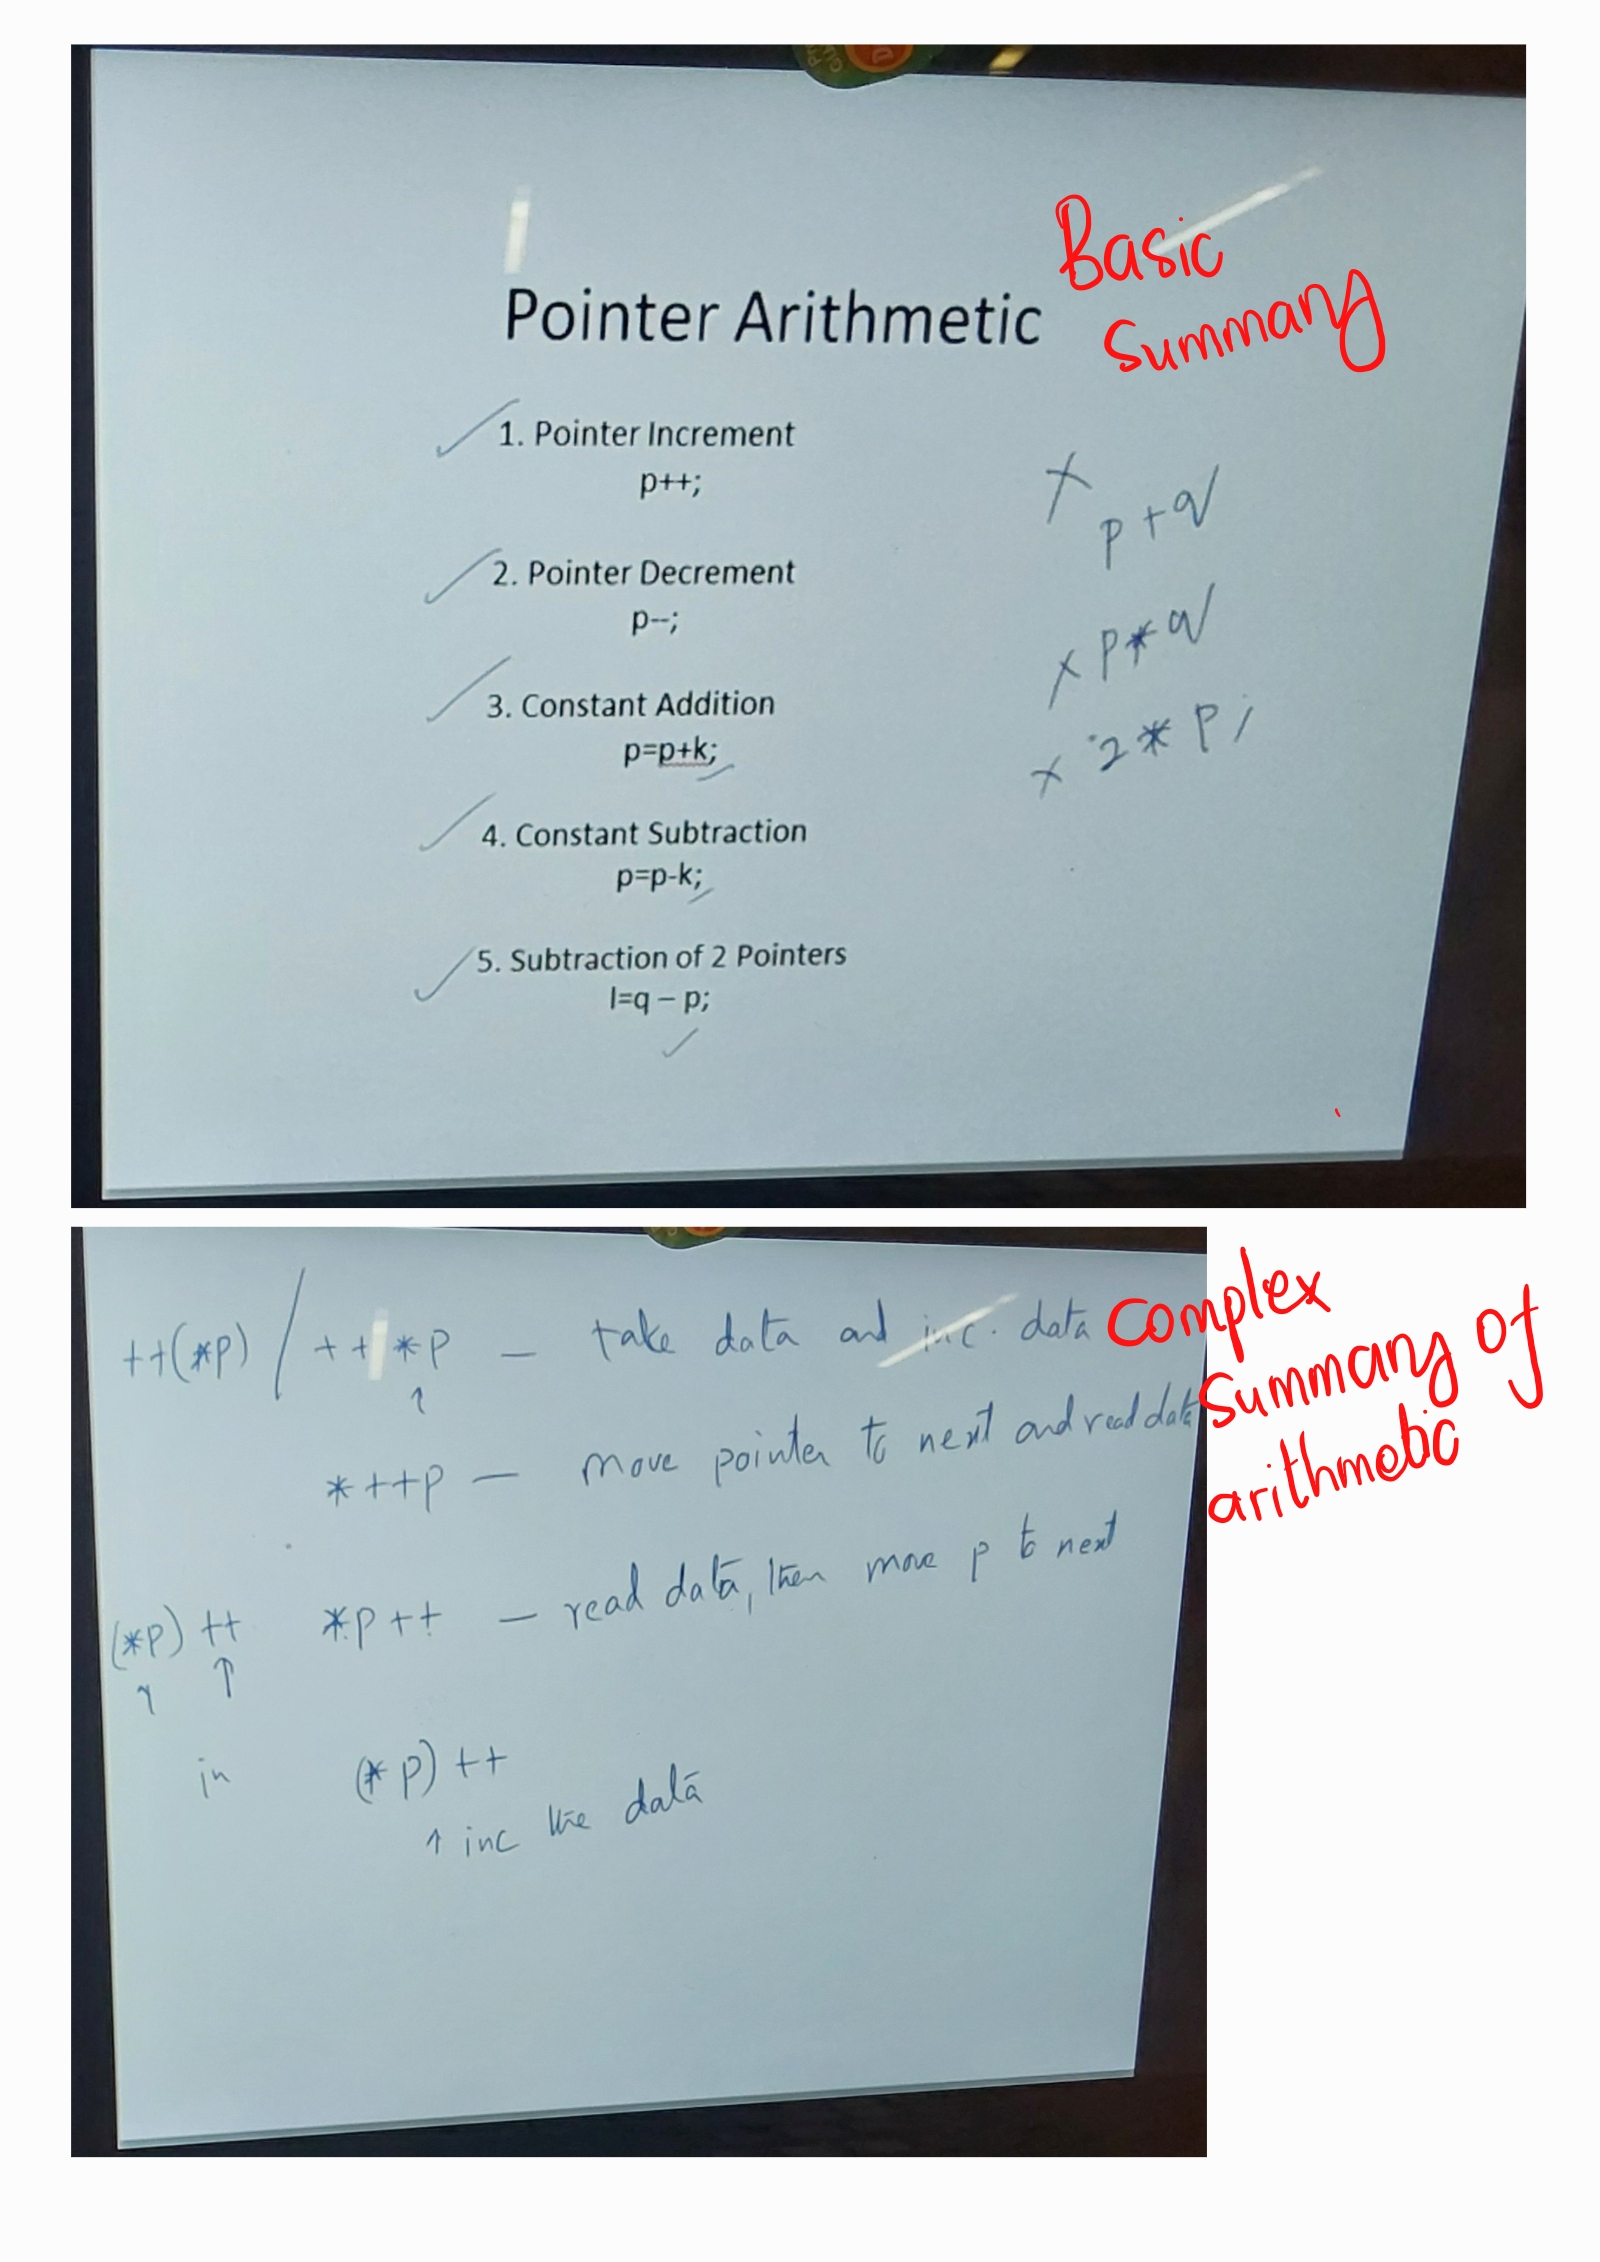 Pointer Arithmetic
Basic
Summary
1. Pointer Increment
p++;
p + q
2. Pointer Decrement
p--;
p * q
3. Constant Addition
p=p+k;
2 * p;
4. Constant Subtraction
p=p-k;
5. Subtraction of 2 Pointers
l=q – p;
++(*p) / ++ *p — take data and inc. data
Complex
Summary of
arithmetic
*++p — move pointer to next and read data
(*p) ++ *p++ — read data, then move p to next
in (*p) ++
↑ inc the data